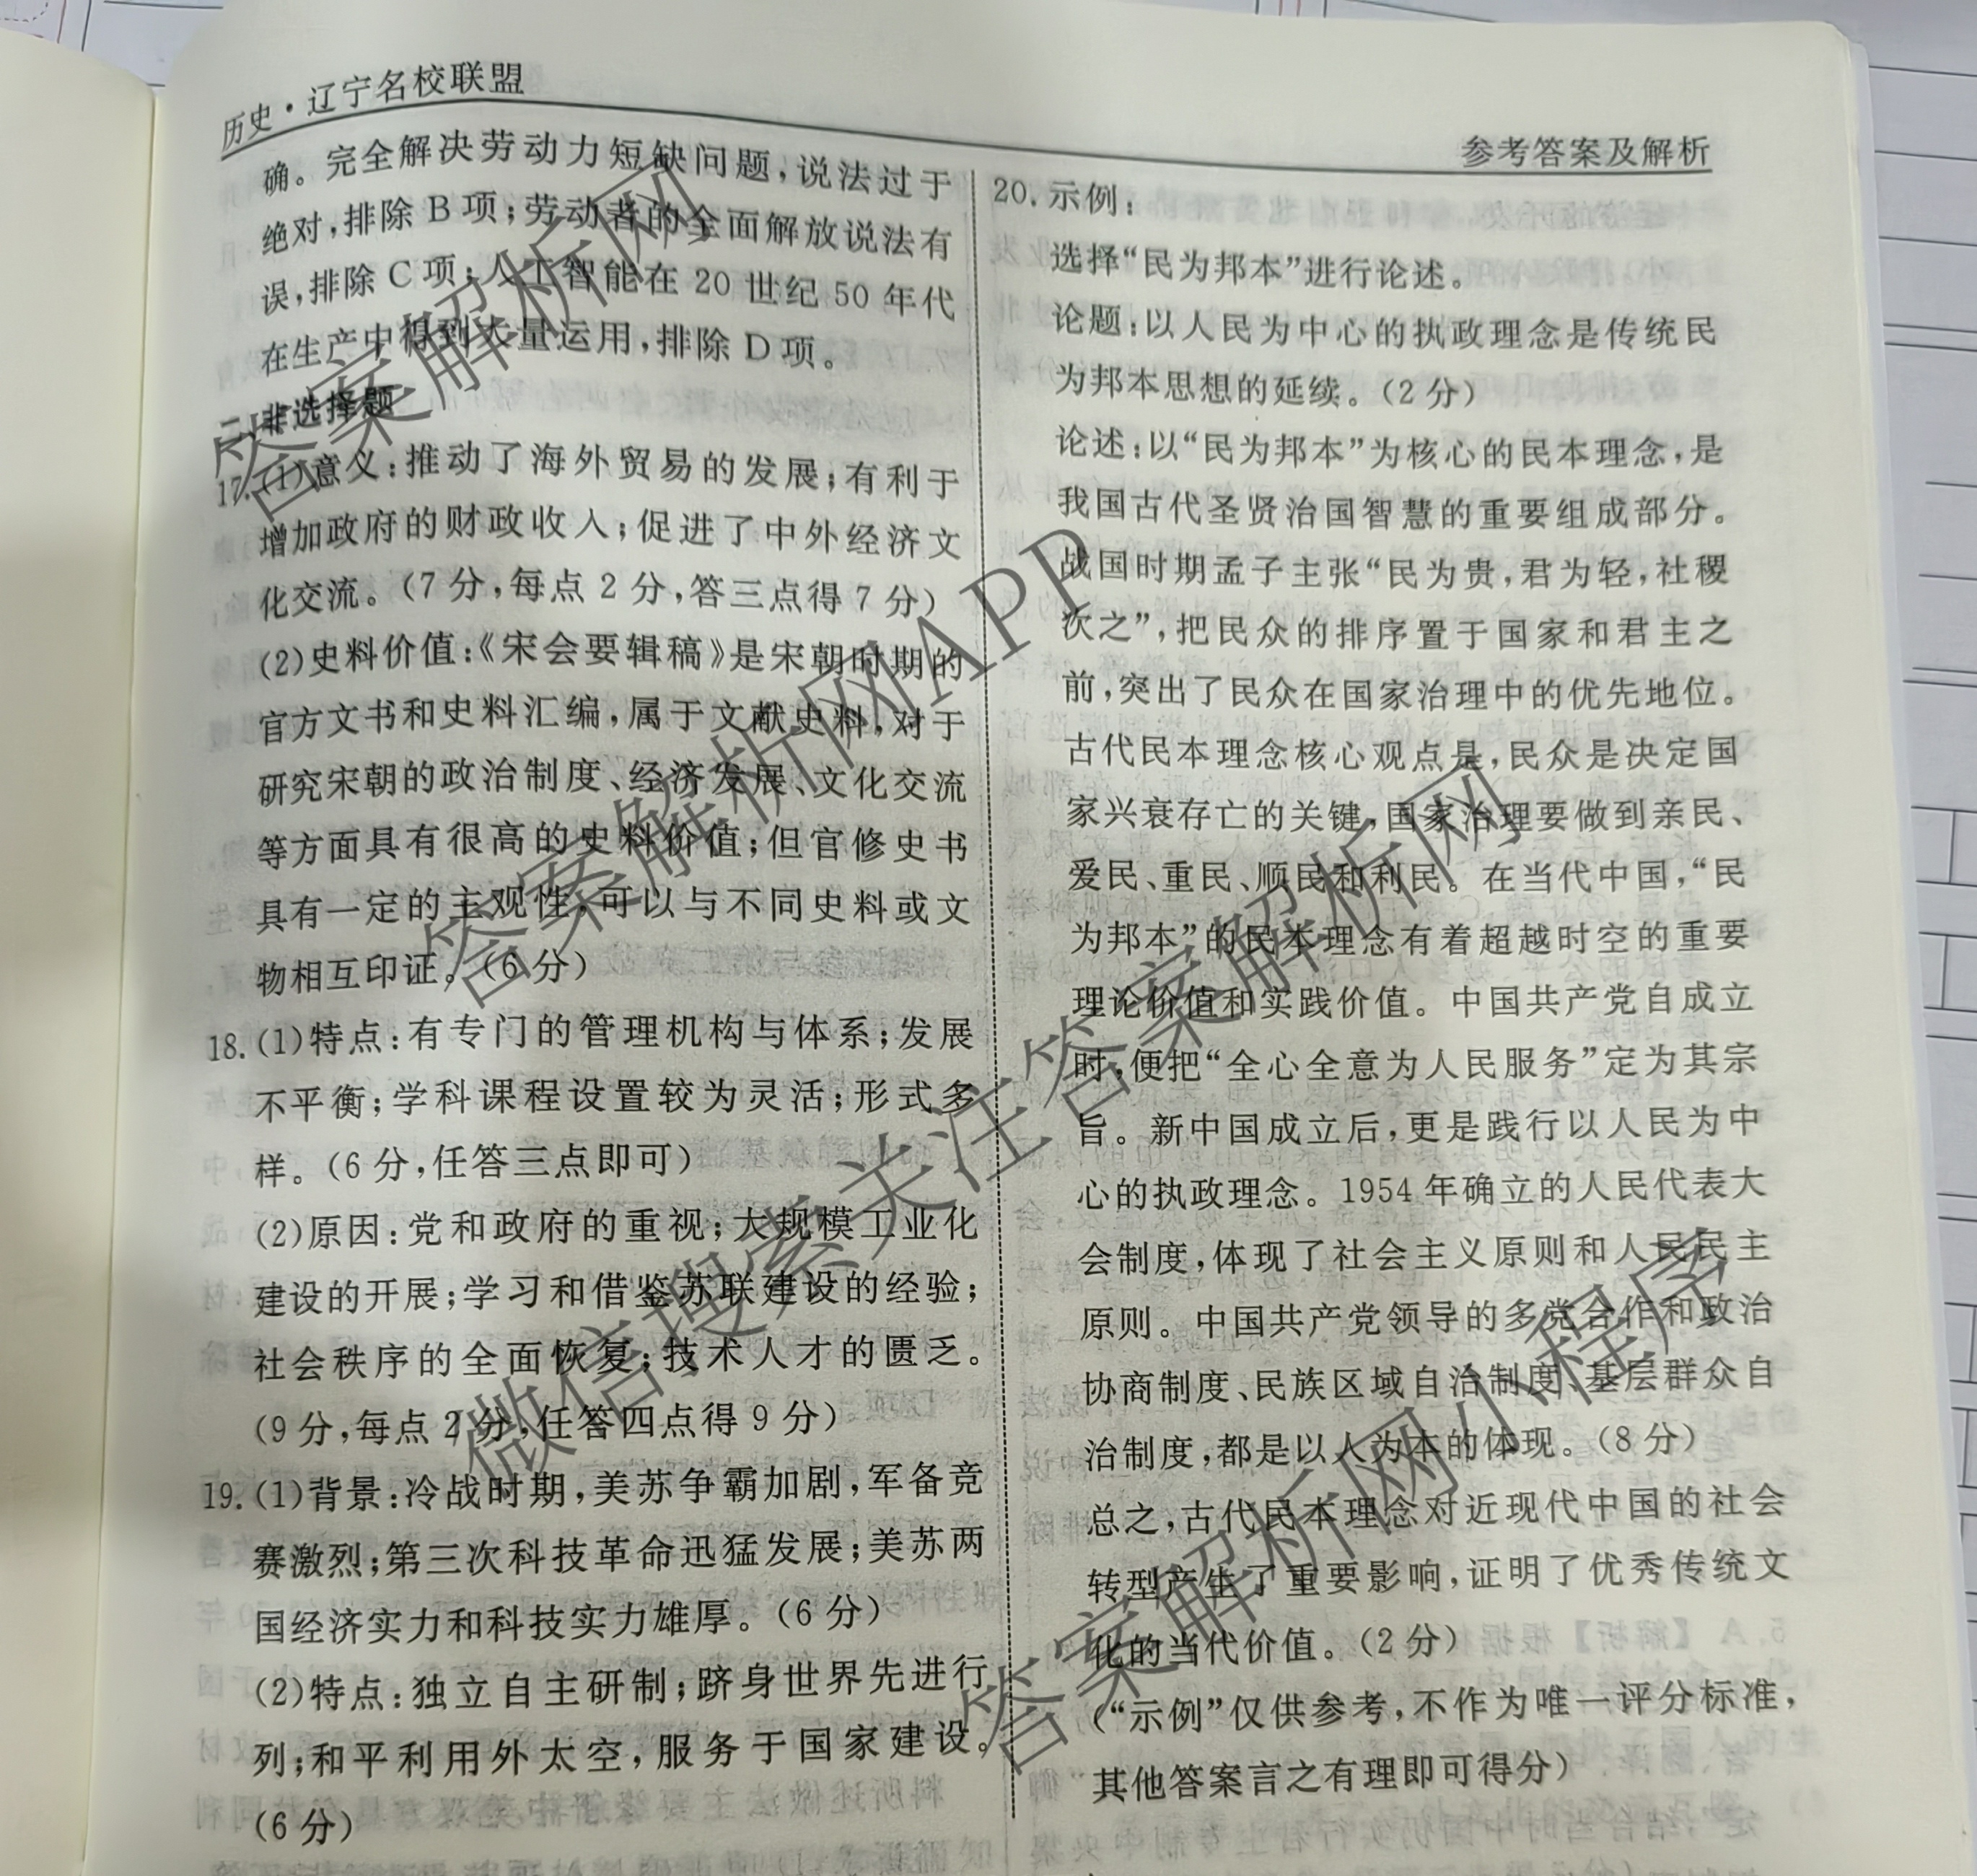 历史·辽宁名校联盟
参考答案及解析
确。完全解决劳动力短缺问题,说法过于
绝对,排除B项;劳动者的全面解放说法有
误,排除C项;人工智能在20世纪50年代
在生产中得到大量运用,排除D项。
二、非选择题
17.(1)意义:推动了海外贸易的发展;有利于
增加政府的财政收入;促进了中外经济文
化交流。(7分,每点2分,答三点得7分)
(2)史料价值:《宋会要辑稿》是宋朝时期的
官方文书和史料汇编,属于文献史料,对于
研究宋朝的政治制度、经济发展、文化交流
等方面具有很高的史料价值;但官修史书
具有一定的主观性,可以与不同史料或文
物相互印证。(6分)
18.(1)特点:有专门的管理机构与体系;发展
不平衡;学科课程设置较为灵活;形式多
样。(6分,任答三点即可)
(2)原因:党和政府的重视;大规模工业化
建设的开展;学习和借鉴苏联建设的经验;
社会秩序的全面恢复;技术人才的匮乏。
(9分,每点2分,任答四点得9分)
19.(1)背景:冷战时期,美苏争霸加剧,军备竞
赛激烈;第三次科技革命迅猛发展;美苏两
国经济实力和科技实力雄厚。(6分)
(2)特点:独立自主研制;跻身世界先进行
列;和平利用外太空,服务于国家建设。
(6分)
20.示例:
选择“民为邦本”进行论述。
论题:以人民为中心的执政理念是传统民
为邦本思想的延续。(2分)
论述:以“民为邦本”为核心的民本理念,是
我国古代圣贤治国智慧的重要组成部分。
战国时期孟子主张“民为贵,君为轻,社稷
次之”,把民众的排序置于国家和君主之
前,突出了民众在国家治理中的优先地位。
古代民本理念核心观点是,民众是决定国
家兴衰存亡的关键,国家治理要做到亲民、
爱民、重民、顺民和利民。在当代中国,“民
为邦本”的民本理念有着超越时空的重要
理论价值和实践价值。中国共产党自成立
时,便把“全心全意为人民服务”定为其宗
旨。新中国成立后,更是践行以人民为中
心的执政理念。1954年确立的人民代表大
会制度,体现了社会主义原则和人民民主
原则。中国共产党领导的多党合作和政治
协商制度、民族区域自治制度、基层群众自
治制度,都是以人为本的体现。(8分)
总之,古代民本理念对近现代中国的社会
转型产生了重要影响,证明了优秀传统文
化的当代价值。(2分)
(“示例”仅供参考,不作为唯一评分标准,
其他答案言之有理即可得分)
答案解析网
答案解析网APP
微信搜索关注答案解析网
答案解析网小程序